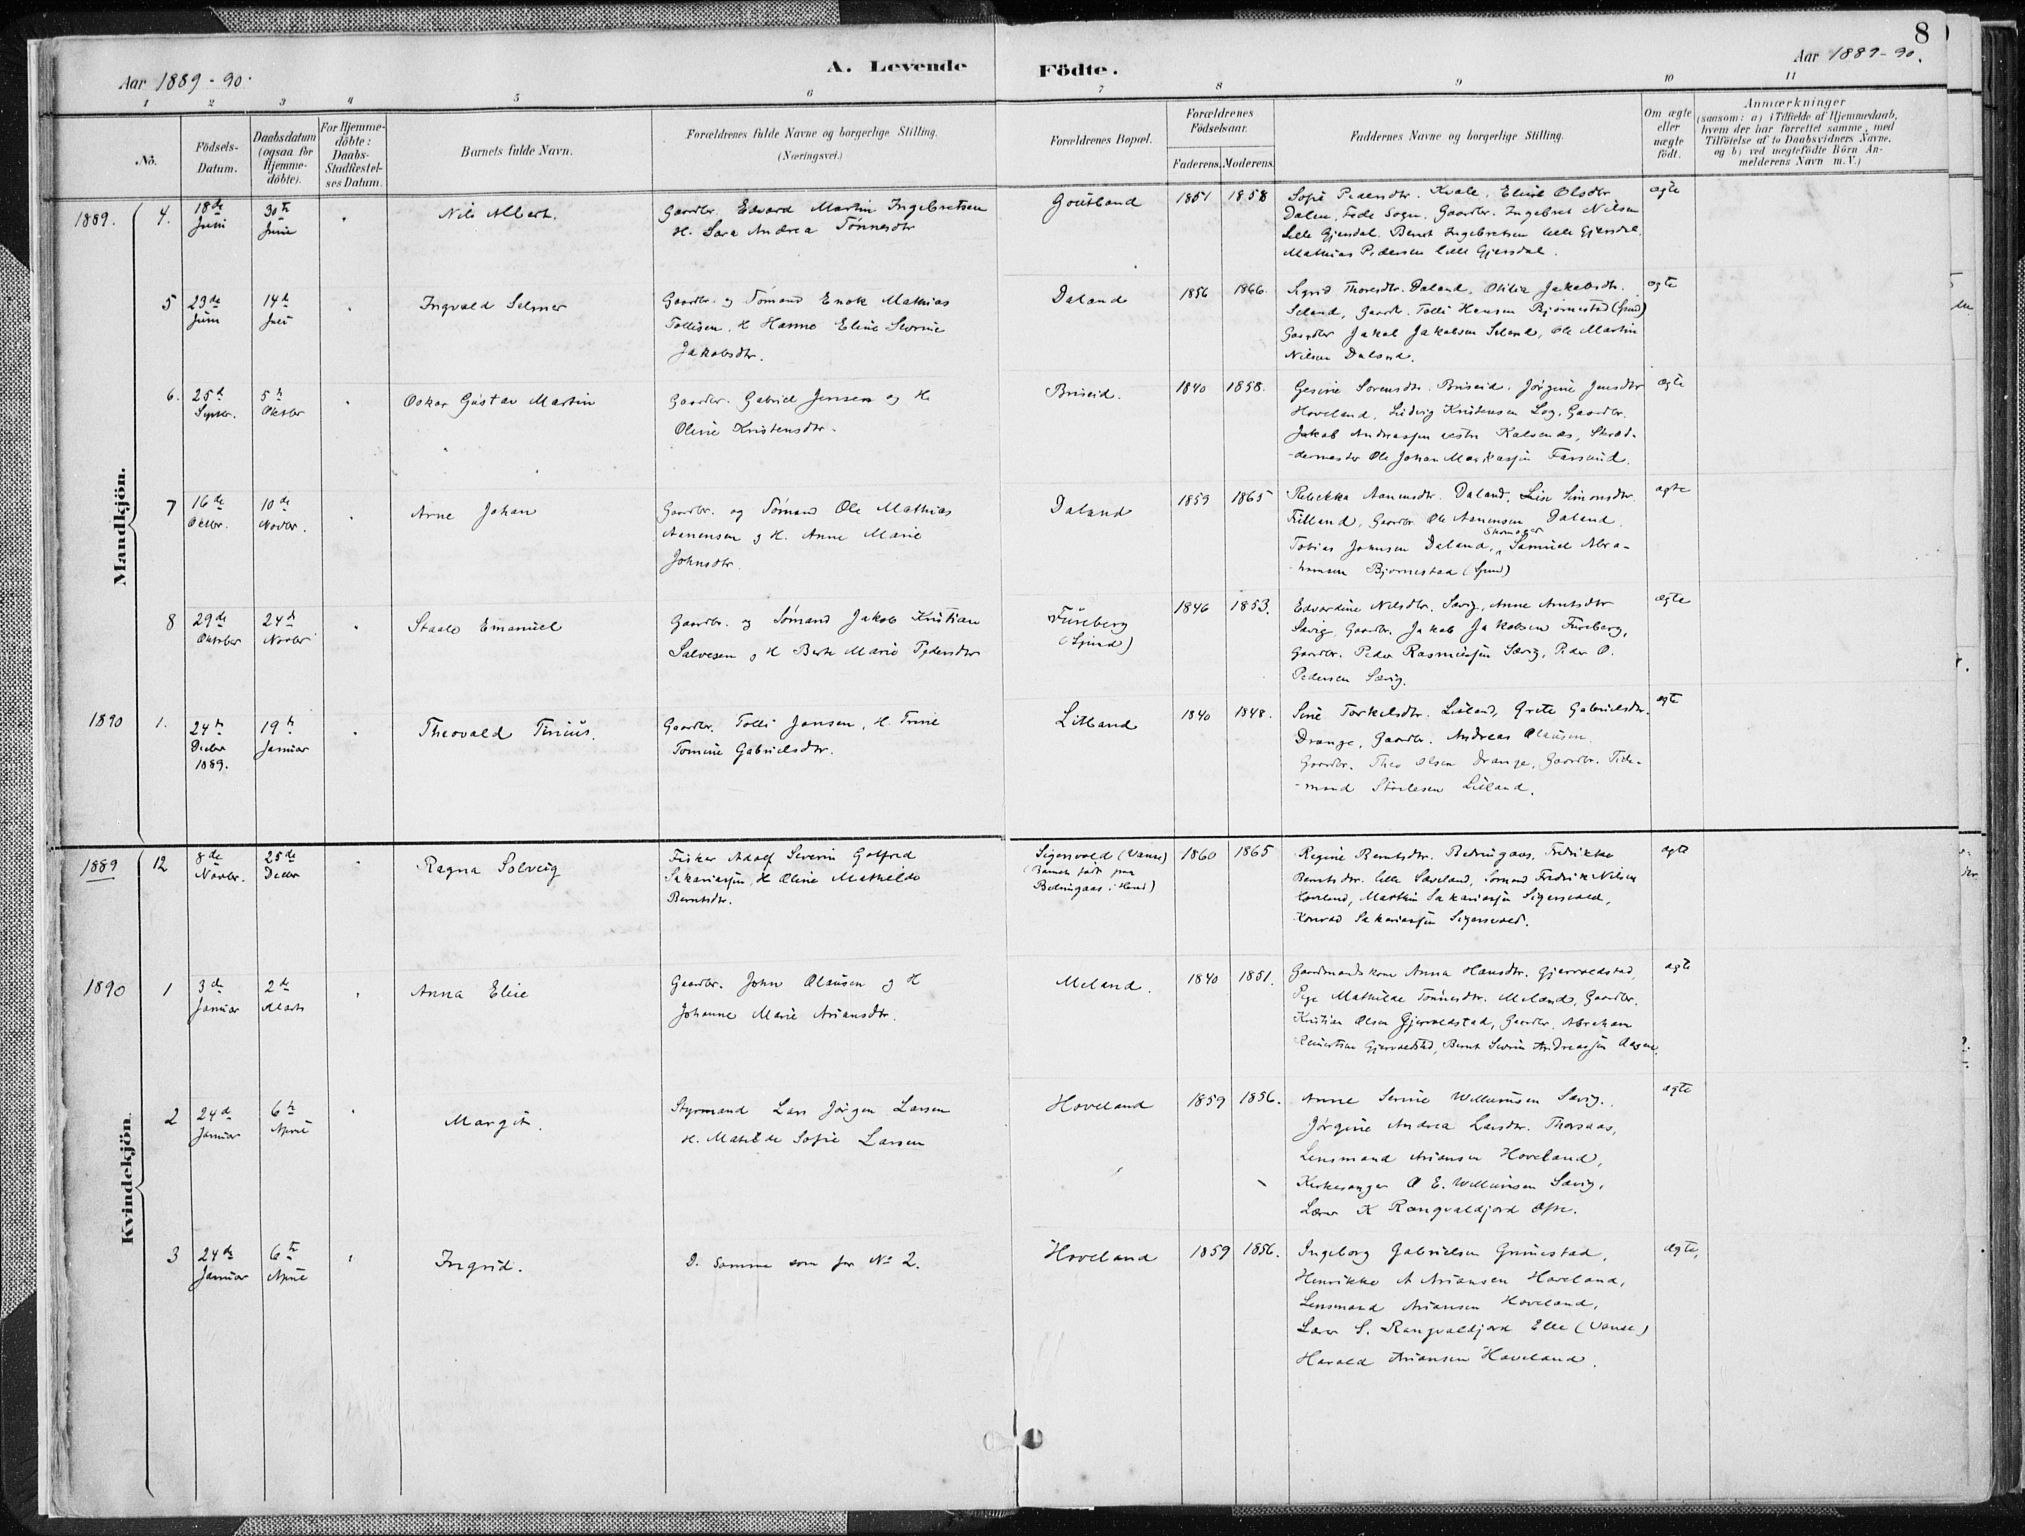 8
Aar 1889-90.
A. Levende Födte.
Aar 1889-90.
1 2 3 4 5 6 7 8 9 10 11
No.
Födsels-Datum.
Daabsdatum (ogsaa for Hjemme-döbte).
For Hjemme-döbte: Daabs-Stadfæstel-ses Datum.
Barnets fulde Navn.
Forældrenes fulde Navne og borgerlige Stilling. (Næringsvei.)
Forældrenes Bopæl.
Forældrenes Födselsaar.
Faderens. Moderens.
Faddernes Navne og borgerlige Stilling.
Om ægte eller uægte födt.
Anmærkninger
(saasom: a) i Tilfælde af Hjemmedaab,
hvem der har forrettet samme, med
Tilföielse af to Daabsvidners Navne,
og b) ved uægtefödte Börn An-
melderens Navn m. V.)
Mandkjön.
1889. 4. 18de Juni 30te Juni
Nils Albert.
Gaardbr. Edvard Martin Ingebretsen
H. Sara Andrea Tönnesdtr
1851 1858
Sofie Pedersdtr. Kvale, Eline Olsdtr
Dalen, Fede Sogn, Gaardbr. Ingebret Nilsen
Lille Gjersdal. Bernt Ingebretsen lille Gjersdal,
Mathias Pedersen lille Gjersdal.
ægte
5 23de Juni 14de Juli
Ingvald Selmer
Gaardbr. og Sømand Enok Mathias
Tollisen, H Hanne Eline Serine
Jakobsdtr.
Daland
1856 1866.
Sigrid Thoresdtr. Daland, Otilia Jakobsdtr.
Seland, Gaardbr. Tolli Hansen Bjørnestad
Gaardbr Jakob Jakobsen Seland, Ole Martin
Nilsen Daland.
ægte
6. 25de Septbr. 5te Oktbr
Oskar Gustav Martin
Gaardbr. Gabriel Jensen og H.
Oline Kristensdtr.
Briseid.
1840 1858.
Gesine Sørensdtr. Briseid. Jørgine Jensdtr
Hoveland, Ludvig Kristensen Log. Gaardbr.
Jakob Andreassen vestre Kalvenæs, Skræd-
-dermester Ole Johan Markussen Farsund.
ægte
7 16de Oktbr. 10de Novbr.
Arne Johan
Gaardbr. og Sømand Ole Mathias
Aanensen og H. Anne Marie
Johnsdtr.
Daland
1859 1865
Rebekka Aanensdtr. Daland, Lise Simonsdtr.
Gaardbr Ole Aanensen Daland.
Tobias Johnsen Daland, Skomager Samuel Abra-
-hamsen Bjørnestad
ægte
8 29de Oktober 24de Novbr
Staale Emanuel
Gaardbr. og Sømand Jakob Kristian
Salvesen og H Berte Marie Pedersdtr
Fureberg
1846 1853.
Edvardine Nilsdtr. Sævig, Anne Arntsdtr
Sævig Gaardbr. Jakob Jakobsen Fureberg,
Gaardbr. Peder Rasmussen Sævig, Peder O.
Pedersen Sævig.
ægte
1890 1. 24de Decbr 1889. 19de Januar
Theovald Tinius.
Gaardbr. Tolli Jansen, H. Trine
Tomine Gabrielsdtr.
Litland
1840 1848.
Sine Torkelsdtr. Litland, Grete Gabrielsdtr.
Drange, Gaardbr. Andreas Olausen
Gaardbr. Theo Olsen Drange, Gaardbr. Tide-
-mand Litland.
ægte
Kvindekjön.
1889 12 8de Novbr. 25de Decbr
Ragna Solveig
Fisker Adolf Severin Gotfred
Sakariassen, H Oline Mathilde
Berntsdtr.
Sigersvold (Vanse)
(Barnet født paa
Bedringaas i Herad)
1860 1865
Regine Berntsdtr. Bedringaas, Fredrikke
Berntsdtr. lille Sæveland, Sømand Fredrik Nilsen
Hoveland, Martin Sakariassen Sigersvold,
Konrad Sakariassen Sigersvold.
ægte
1890 1 3de Januar 2de Marts
Anna Elise
Gaardbr. John Olausen og H
Johanne Marie Ariansdtr.
Meland.
1840 1851.
Gaardmandskone Anna Hansdtr. Gjervoldstad,
Pige Mathilde Tönnesdtr. Meland, Gaardbr.
Kristian Olsen Gjervoldstad, Gaardbr. Abraham
Gjervoldstad, Bernt Severin Andreassen
ægte
2 24de Januar 6te April
Margit.
Styrmand Lars Jørgen Larsen
H. Matilde Sofie Larsen
Hoveland
1859 1856.
Anne Serine Willumsen Sævig.
Jørgine Andrea Larsdtr. Thorsaas,
Lensmand Ariansen Hoveland,
Kirkesanger O E. Willumsen Sævig,
Lærer K Rangvaldjord
ægte
3 24de Januar 6te April
Ingrid.
D. samme som for No 2.
Hoveland
1859 1856.
Ingeborg Gabrielsen Grimestad,
Henrikke A Ariansen Hoveland,
Lensmand Ariansen Hoveland,
Lærer S. Rangvaldjord Elle (Vanse)
Harald Ariansen Hoveland.
ægte,